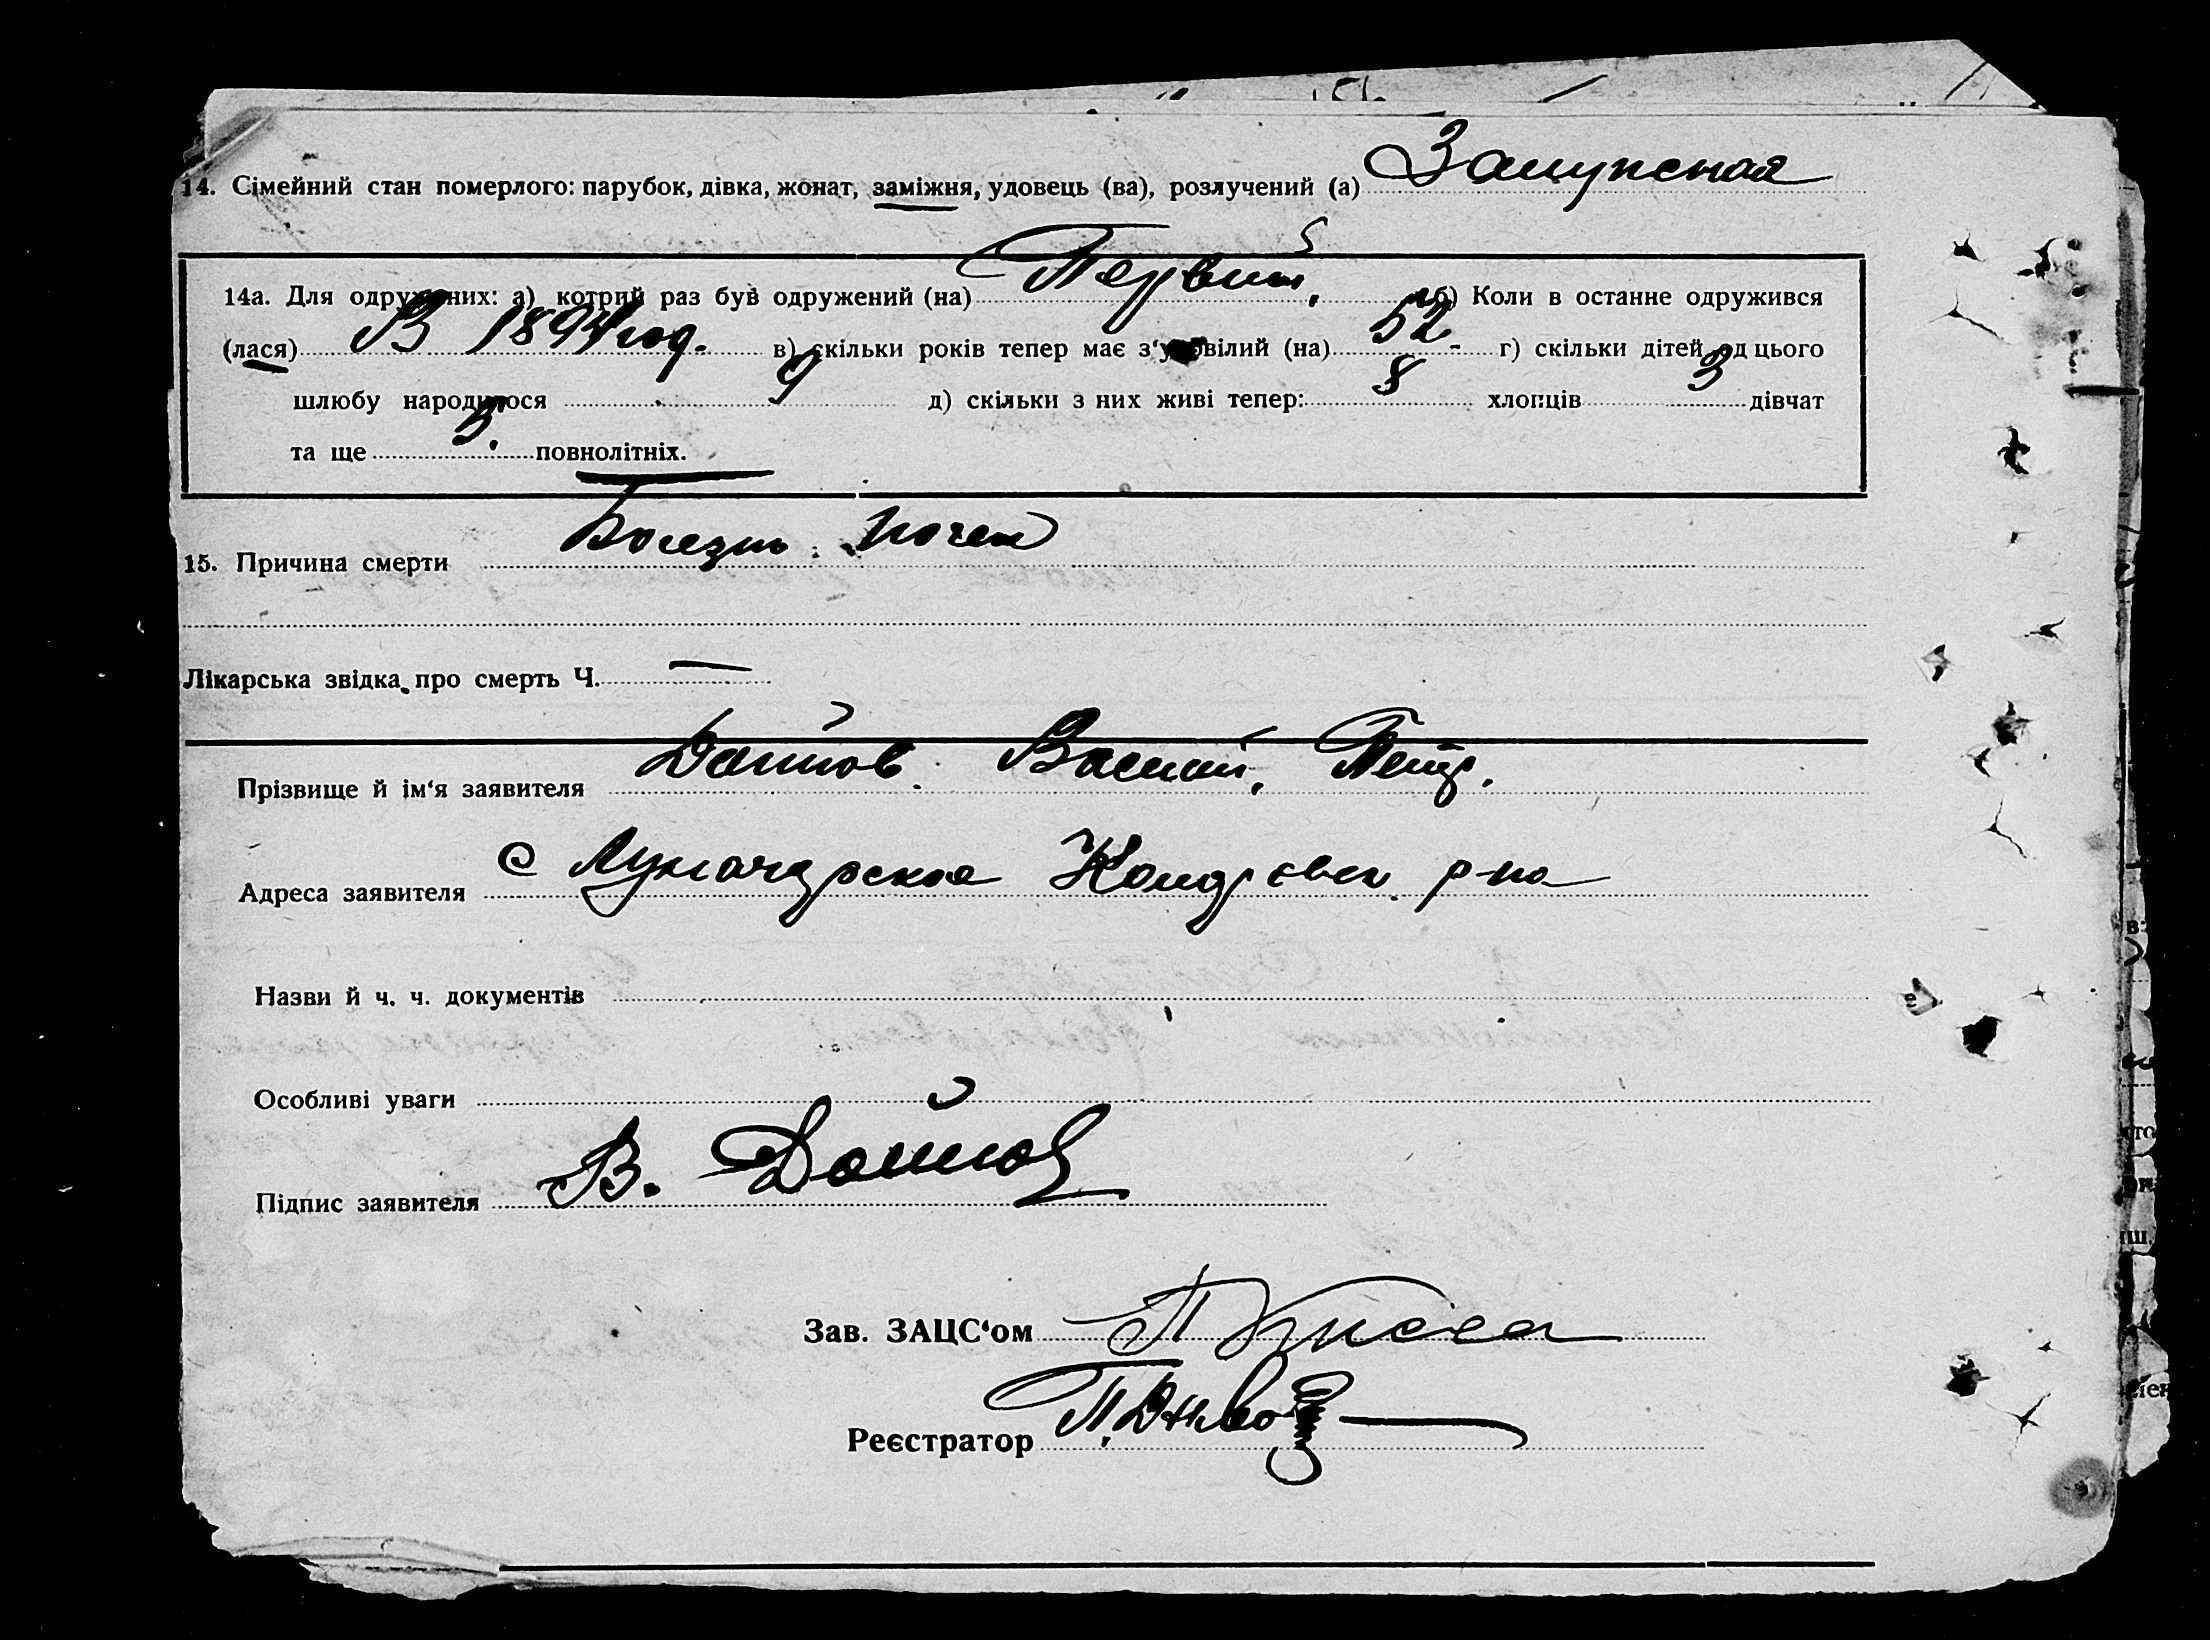 14. Сімейний стан померлого: парубок, дівка, жонат, заміжня, удовець (ва), розлучений (а) Замужная
14а. Для одружених: а) котрий раз був одружений (на) Первый, б) Коли в останнє одружився
(лася) В 1894 год. в) скільки років тепер має з'умовілий (на) 52 - г) скільки дітей од цього
шлюбу народилося 9 д) скільки з них живі тепер: 8 хлопців 3 дівчат
та ще 5. повнолітніх.
15. Причина смерти Болезнь почек
Лікарська звідка про смерть Ч. —
Прізвище й ім'я заявителя Дойнов Васили, Петр.
Адреса заявителя с Луначарское р-на
Назви й ч. ч. документів
Особливі уваги
Підпис заявителя В. Дойнов
Зав. ЗАЦС'ом
Реєстратор